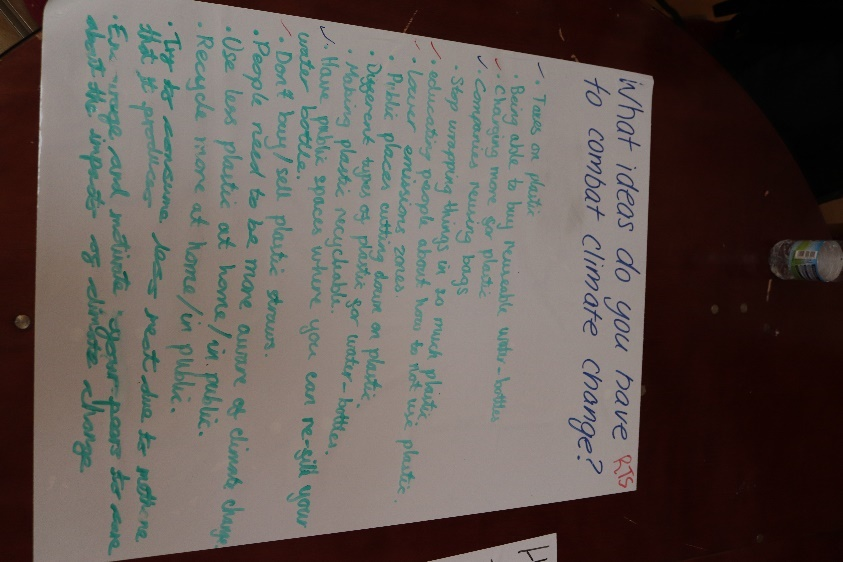 What ideas do you have RTS
to combat climate change?
✓ • Taxes on plastic
• Being able to buy reuseable water-bottles
• Changing more for plastic
✓ • Companies reusing bags
• Stop wrapping things in so much plastic
• educating people about how to not use plastic.
• Lower emissions zones.
• Public places cutting down on plastic.
• Different types of plastic for water-bottles.
• Making plastic recyclable.
✓ • Have public spaces where you can re-fill your
water bottle.
• Don't buy/sell plastic straws.
• People need to be more aware of climate change.
• Use less plastic at home/in public.
• Recycle more at home/in public.
• Try to consume less meat due to methane
that it produces
• Encourage and motivate your peers to care
about the impacts of climate change